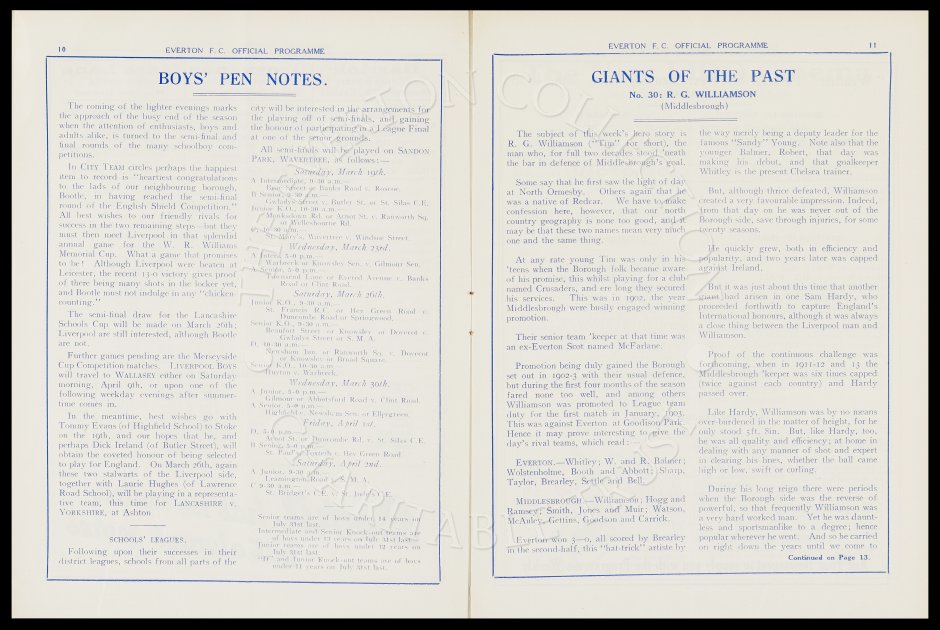 10
EVERTON F. C. OFFICIAL PROGRAMME
BOYS' PEN NOTES.
The coming of the lighter evenings marks
the approach of the busy end of the season
when the attention of enthusiasts, boys and
adults alike, is turned to the semi-final and
final rounds of the many schoolboy com-
petitions.
In CITY TEAM circles perhaps the happiest
item to record is "heartiest congratulations
to the lads of our neighbouring borough,
Bootle, in having reached the semi-final
round of the English Shield Competition."
All best wishes to our friendly rivals for
success in the two remaining steps—but they
must then meet Liverpool in that splendid
annual game for the W. R. Williams
Memorial Cup. What a game that promises
to be! Although Liverpool were beaten at
Leicester, the recent 13-0 victory gives proof
of there being many shots in the locker yet,
and Bootle must not indulge in any "chicken-
counting."
The semi-final draw for the Lancashire
Schools Cup will be made on March 26th;
Liverpool are still interested, although Bootle
are not.
Further games pending are the Merseyside
Cup Competition matches. LIVERPOOL BOYS
will travel to WALLASEY either on Saturday
morning, April 9th, or upon one of the
following weekday evenings after summer-
time comes in.
In the meantime, best wishes go with
Tommy Evans (of Highfield School) to Stoke
on the 19th, and our hopes that he, and
perhaps Dick Ireland (of Butler Street), will
obtain the coveted honour of being selected
to play for England. On March 26th, again
these two stalwarts of the Liverpool side,
together with Laurie Hughes (of Lawrence
Road School), will be playing in a representa-
tive team, this time for LANCASHIRE v.
YORKSHIRE, at Ashton
SCHOOLS' LEAGUES.
Following upon their successes in their
district leagues, schools from all parts of the
city will be interested in the arrangements for
the playing off of semi-finals, and gaining
the honour of participating in a League Final
at one of the senior grounds.
All semi-finals will be played on SANDON
PARK, WAVERTREE, as follows:—
Saturday, March 19th.
A Intermediate, 9-0 a.m.—
East Street or Banks Road v. Roscoe.
D Senior, 9-30 a.m.—
Gwladys Street v. Butler St. or St. Silas C.E.
Junior K.O., 10-30 a.m.—
Monksdown Rd. or Arnot St. v. Ranworth Sq.
or Melbourne Rd.
10-30 a.m.—
St. Mary's, Wavertree v. Windsor Street.
Wednesday, March 23rd.
A Inter., 5-0 p.m.—
Warbreck or Knowsley Sen. v. Gilmour Sen.
A Senior, 5-0 p.m.—
Leamond Lane or Evered Avenue v. Banks
Road or Clint Road.
Saturday, March 26th.
Junior K.O., 9-30 a.m.—
St. Francis R.C. or Hey Green Road v.
Duncombe Road or Springwood.
Senior K.O., 9-30 a.m.—
Beaufort Street or Knowsley or Dovecot v.
Gwladys Street or S. M. A.
D. 10-30 a.m.—
Newsham Jun. or Ranworth Sq. v. Dovecot
or Knowsley or Broad Square.
Senior K.O., 10-30 a.m.—
Heyton v. Warbreck.
Wednesday, March 30th.
A Junior, 5-0 p.m.—
Gilmour or Abbotsford Road v. Clint Road.
A Senior, 5-0 p.m.—
Highfield v. Newsham Sen. or Ellergreen.
Friday, April 1st.
D., 5-0 p.m.—
Arnot St. or Duncombe Rd. v. St. Silas C.E.
B Senior, 5-0 p.m.—
St. Paul's, Toxteth v. Hey Green Road.
Saturday, April 2nd.
A Junior, 9-30 a.m.—
Leamington Road v. S. M. A.
C 9-30 a.m.—
St. Bridget's C.E. v. St. Jude's C.E.
Senior teams are of boys under 14 years on
July 31st last.
Intermediate and Senior Knock-out teams are
of boys under 13 years on July 31st last.
Junior teams are of boys under 12 years on
July 31st last.
"D" and Junior Knock-out teams are of boys
under 11 years on July 31st last.
EVERTON F. C. OFFICIAL PROGRAMME
11
GIANTS OF THE PAST
No. 30: R. G. WILLIAMSON
(Middlesbrough)
The subject of this week's hero story is
R. G. Williamson ("Tim" for short), the
man who, for full two decades stood 'neath
the bar in defence of Middlesbrough's goal.
Some say that he first saw the light of day
at North Ormesby. Others again that he
was a native of Redcar. We have to make
confession here, however, that our north
country geography is none too good, and it
may be that these two names mean very much
one and the same thing.
At any rate young Tim was only in his
'teens when the Borough folk became aware
of his promise, this whilst playing for a club
named Crusaders, and ere long they secured
his services. This was in 1902, the year
Middlesbrough were busily engaged winning
promotion.
Their senior team 'keeper at that time was
an ex-Everton Scot named McFarlane.
Promotion being duly gained the Borough
set out in 1902-3 with their usual defence,
but during the first four months of the season
fared none too well, and among others
Williamson was promoted to League team
duty for the first match in January, 1903.
This was against Everton at Goodison Park.
Hence it may prove interesting to give the
day's rival teams, which read:—
EVERTON.—Whitley; W. and R. Balmer;
Wolstenholme, Booth and Abbott; Sharp,
Taylor, Brearley, Settle and Bell.
MIDDLESBROUGH.—Williamson; Hogg and
Ramsey; Smith, Jones and Muir; Watson,
McAuley, Gettins, Goodson and Carrick.
Everton won 3—0, all scored by Brearley
in the second-half, this "hat-trick" artiste by
the way merely being a deputy leader for the
famous "Sandy" Young. Note also that the
younger Balmer, Robert, that day was
making his debut, and that goalkeeper
Whitley is the present Chelsea trainer.
But, although thrice defeated, Williamson
created a very favourable impression. Indeed,
from that day on he was never out of the
Borough side, save through injuries, for some
twenty seasons.
He quickly grew, both in efficiency and
popularity, and two years later was capped
against Ireland.
But it was just about this time that another
giant had arisen in one Sam Hardy, who
proceeded forthwith to capture England's
International honours, although it was always
a close thing between the Liverpool man and
Williamson.
Proof of the continuous challenge was
forthcoming, when in 1911-12 and 13 the
Middlesbrough 'keeper was six times capped
(twice against each country) and Hardy
passed over.
Like Hardy, Williamson was by no means
over-burdened in the matter of height, for he
only stood 5ft. 9in. But, like Hardy, too,
he was all quality and efficiency; at home in
dealing with any manner of shot and expert
in clearing his lines, whether the ball came
high or low, swift or curling.
During his long reign there were periods
when the Borough side was the reverse of
powerful, so that frequently Williamson was
a very hard worked man. Yet he was daunt-
less and sportsmanlike to a degree; hence
popular wherever he went. And so he carried
on right down the years until we come to
Continued on Page 13.